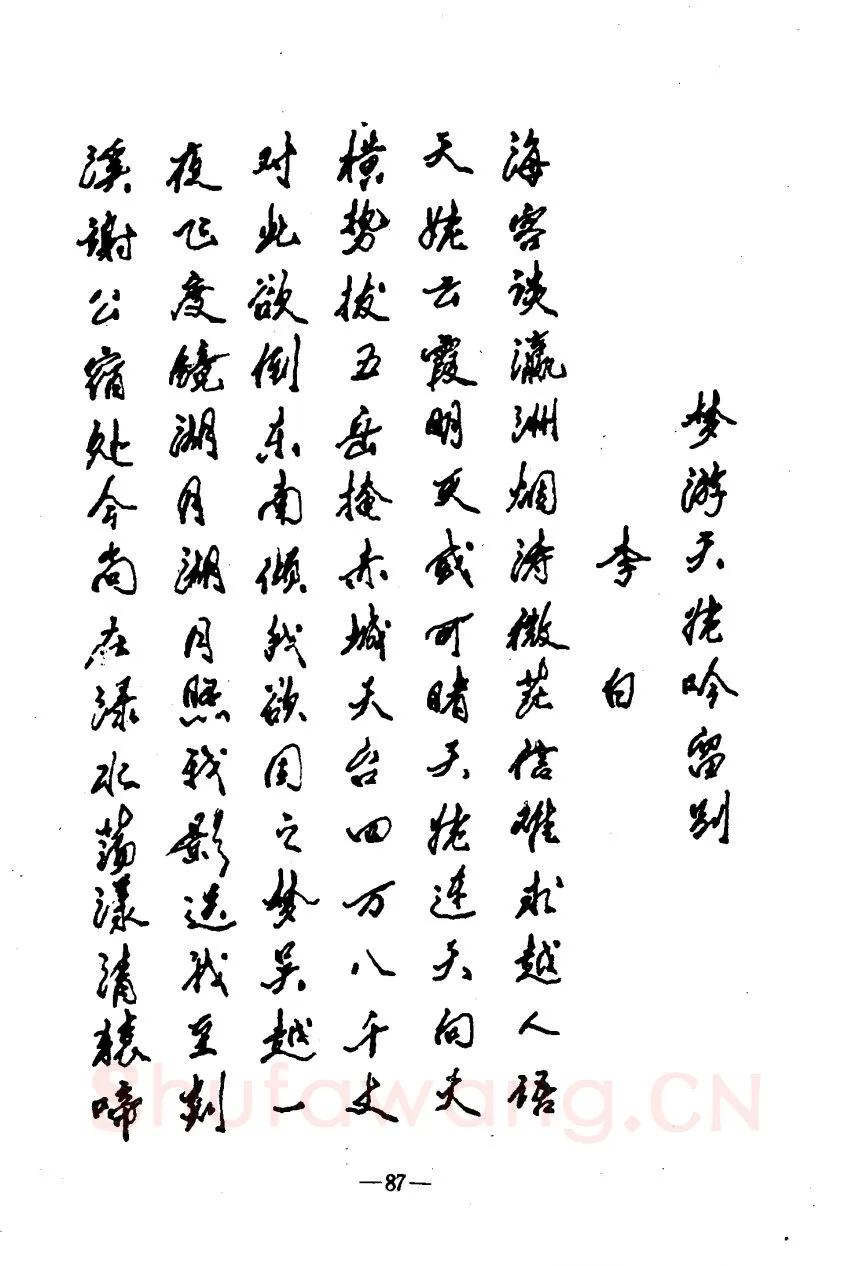 梦游天姥吟留别
李白
海客谈瀛洲烟涛微茫信难求越人语
天姥云霞明灭或可睹天姥连天向天
横势拔五岳掩赤城天台四万八千丈
对此欲倒东南倾我欲因之梦吴越一
夜飞度镜湖月湖月照我影送我至剡
溪谢公宿处今尚在渌水荡漾清猿啼
—87—
shufawang.CN